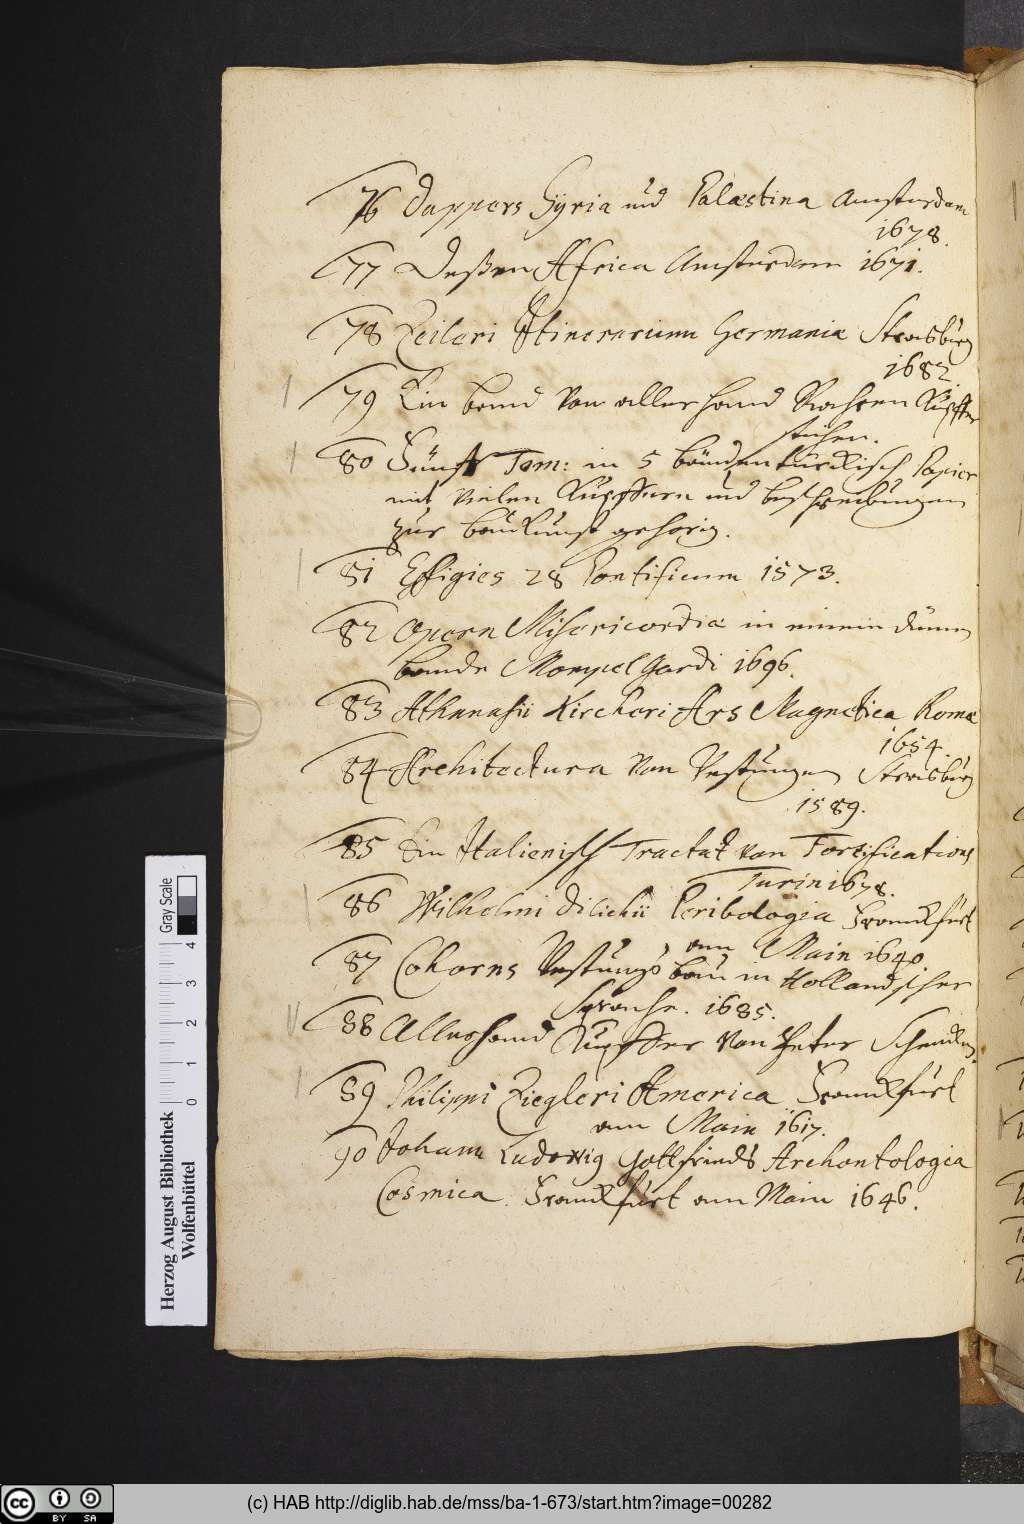 76 Dappers Syria und Palæstina Amsterdam
1678.
77 Deßen Africa Amsterdam 1671.
78 Zeileri Itinerarium Germaniæ Strasbürg
1682
79 Ein band von allerhand Kupffer
stichen.
80 Fünff Tom: in 5 bänden türckisch Papier
mit vielen Kupffern und beschreibungen
zur baukunst gehörig.
81 Effigies 28 Pontificum 1573.
82 Opera Misericordiæ in einem dünn
bande Mompelgardi 1696.
83 Athanasii Kircheri Ars Magnetica Romæ
1654.
84 Architectura von Vestungen Strasbürg
1589.
85 Ein Italienisch Tractat von Fortifications
Turin 1678.
86 Wilhelmi Dilichii Peribologia Franckfürt
am Main 1640.
87 Cohorns Vestungs bau in Hollandischer
Sprache. 1685.
88 Allerhand Kupffer von Peter Schencken.
89 Philippi Ziegleri America Franckfürt
am Main 1617.
90 Johann Ludowig Gottfrieds Archontologia
Cosmica. Franckfürt am Main 1646.
Herzog August Bibliothek
Wolfenbüttel
Gray Scale
0 1 2 3 4
cc BY SA
(c) HAB http://diglib.hab.de/mss/ba-1-673/start.htm?image=00282